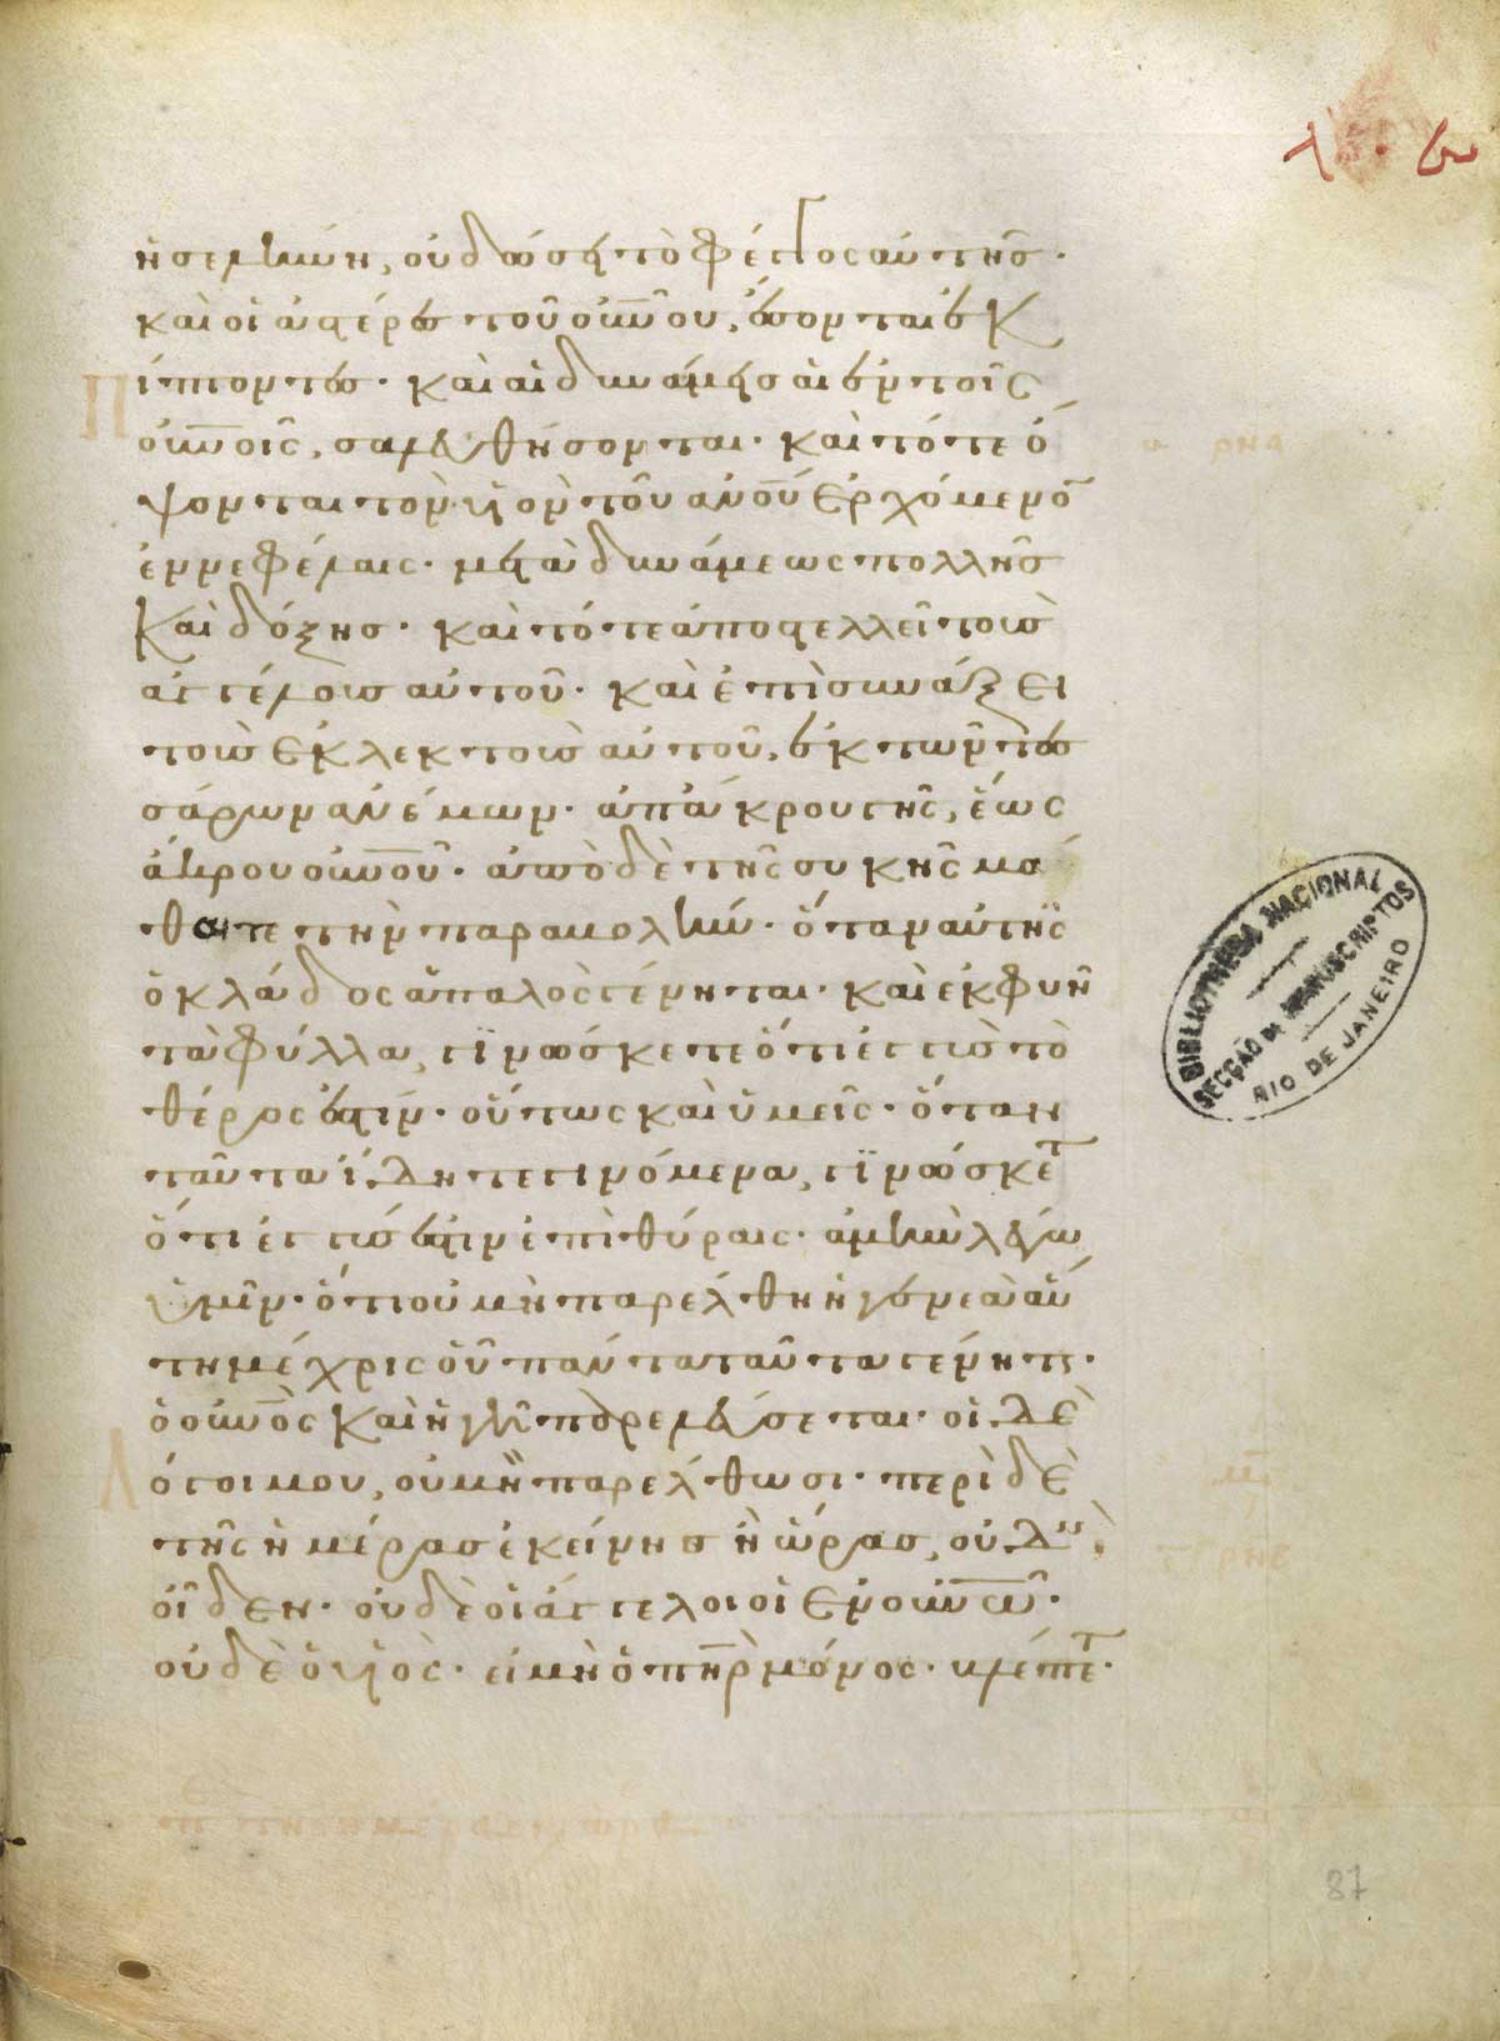 ἡ σελήνη, οὐ δώσει τὸ φέγγος αὐτῆς·
καὶ οἱ ἀστέρες τοῦ οὐνοῦ, ἔσονται ἐκ
πίπτοντες· καὶ αἱ δυνάμεις αἱ ἐν τοῖς
οὐνοῖς, σαλευθήσονται· καὶ τότε ὄ
ψονται τὸν υἱὸν τοῦ ἀνοῦ ἐρχόμενο
ἐν νεφέλαις· μετὰ δυνάμεως πολλῆς
καὶ δόξης· καὶ τότε ἀποστελλεῖ τοὺς
ἀγγέλους αὐτοῦ· καὶ ἐπισυνάξει
τοὺς ἐκλεκτοὺς αὐτοῦ, ἐκ τῶν τεσ
σάρων ἀνέμων· ἀπ' ἄκρου γῆς, ἕως
ἄκρου οὐνοῦ· ἀπὸ δὲ τῆς συκῆς μά
θετε τὴν παραβολήν· ὅταν αὐτῆς
ὁ κλάδος ἁπαλὸς γένηται· καὶ ἐκφυῆ
τὰ φύλλα, γϊνώσκετε ὅτι ἐγγὺς τὸ
θέρος ἐστίν· οὕτως καὶ ὑμεῖς· ὅταν
ταῦτα ἴδητε γινόμενα, γϊνώσκετ
ὅτι ἐγγύς ἐστιν ἐπὶ θύραις· ἀμὴν λέγω
ὑμῖν· ὅτι οὐ μὴ παρέλθη ἡ γενεὰ αὕ
τη μέχρις οὗ πάντα ταῦτα γένητι·
ὁ οὐνὸς καὶ ἡ γῆ παρελεύσεται· οἱ δὲ
λόγοι μου, οὐ μὴ παρέλθωσι· περὶ δὲ
τῆς ἡμέρας ἐκείνης ἢ ὥρας, οὐδεὶς
οἶδεν· οὐδὲ οἱ ἄγγελοι οἱ ἐν οὐνῶ·
οὐδὲ ὁ υἱὸς· εἰ μὴ ὁ πηρ μόνος· βλέπετ·
BIBLIOTHECA NACIONAL
SECÇÃO DE MANUSCRIPTOS
RIO DE JANEIRO
87